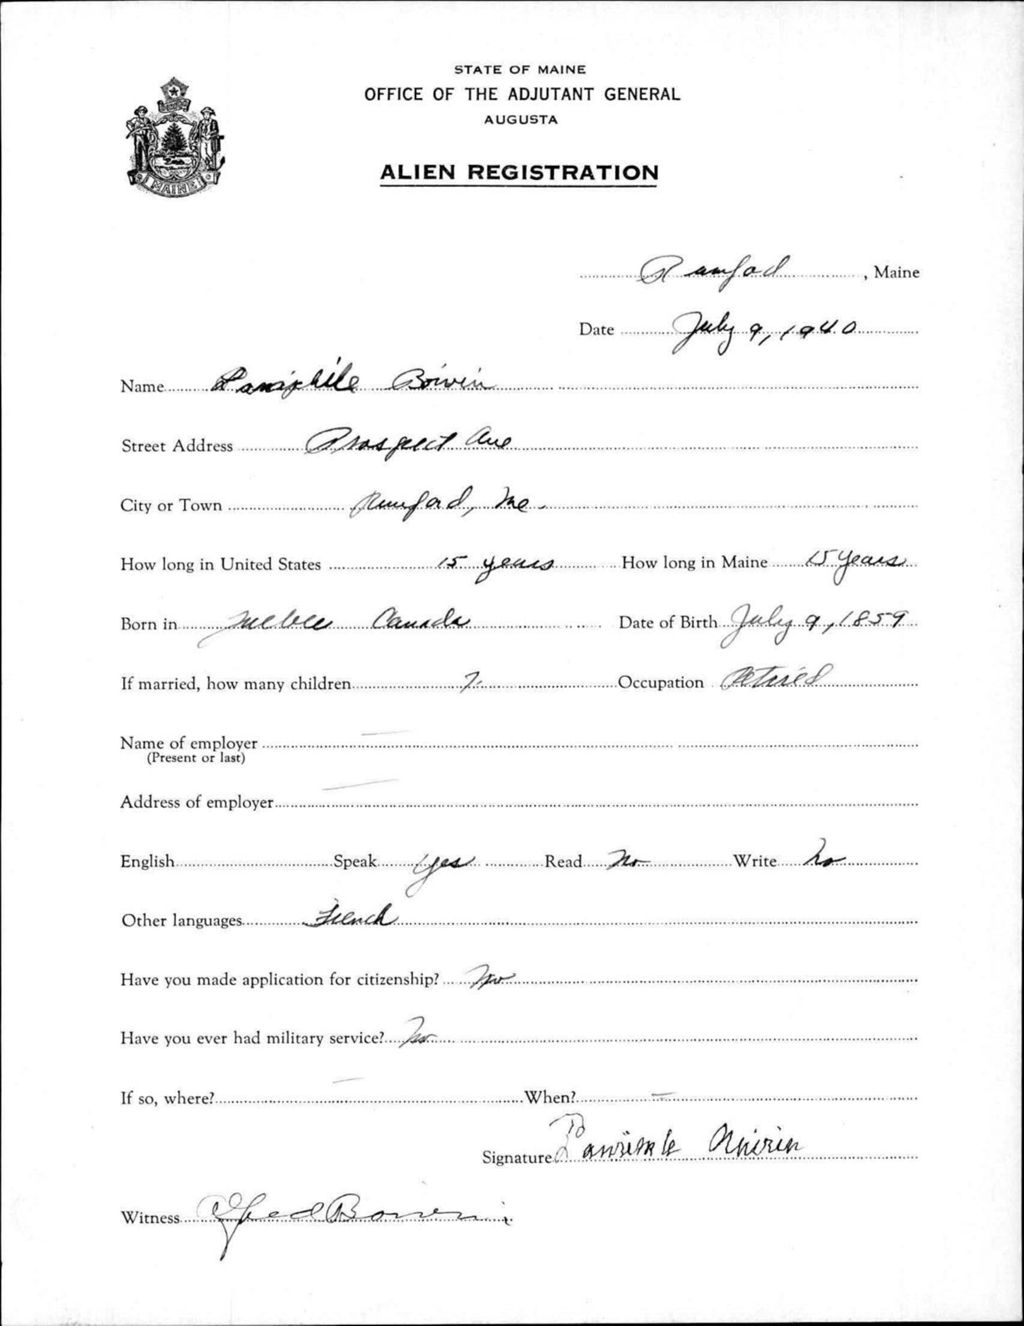 STATE OF MAINE
OFFICE OF THE ADJUTANT GENERAL
AUGUSTA
MAINE
ALIEN REGISTRATION
Rumford, Maine
Date July 9, 1940
Name Pamphile Boivin
Street Address Prospect Ave
City or Town Rumford, Me.
How long in United States 15 years How long in Maine 15 years
Born in Quebec Canada Date of Birth July 9, 1859
If married, how many children 7 Occupation Retired
Name of employer —
(Present or last)
Address of employer —
English Speak Yes Read No Write No
Other languages French
Have you made application for citizenship? No
Have you ever had military service? No
If so, where? — When? —
Signature
Witness Alfred Boivin